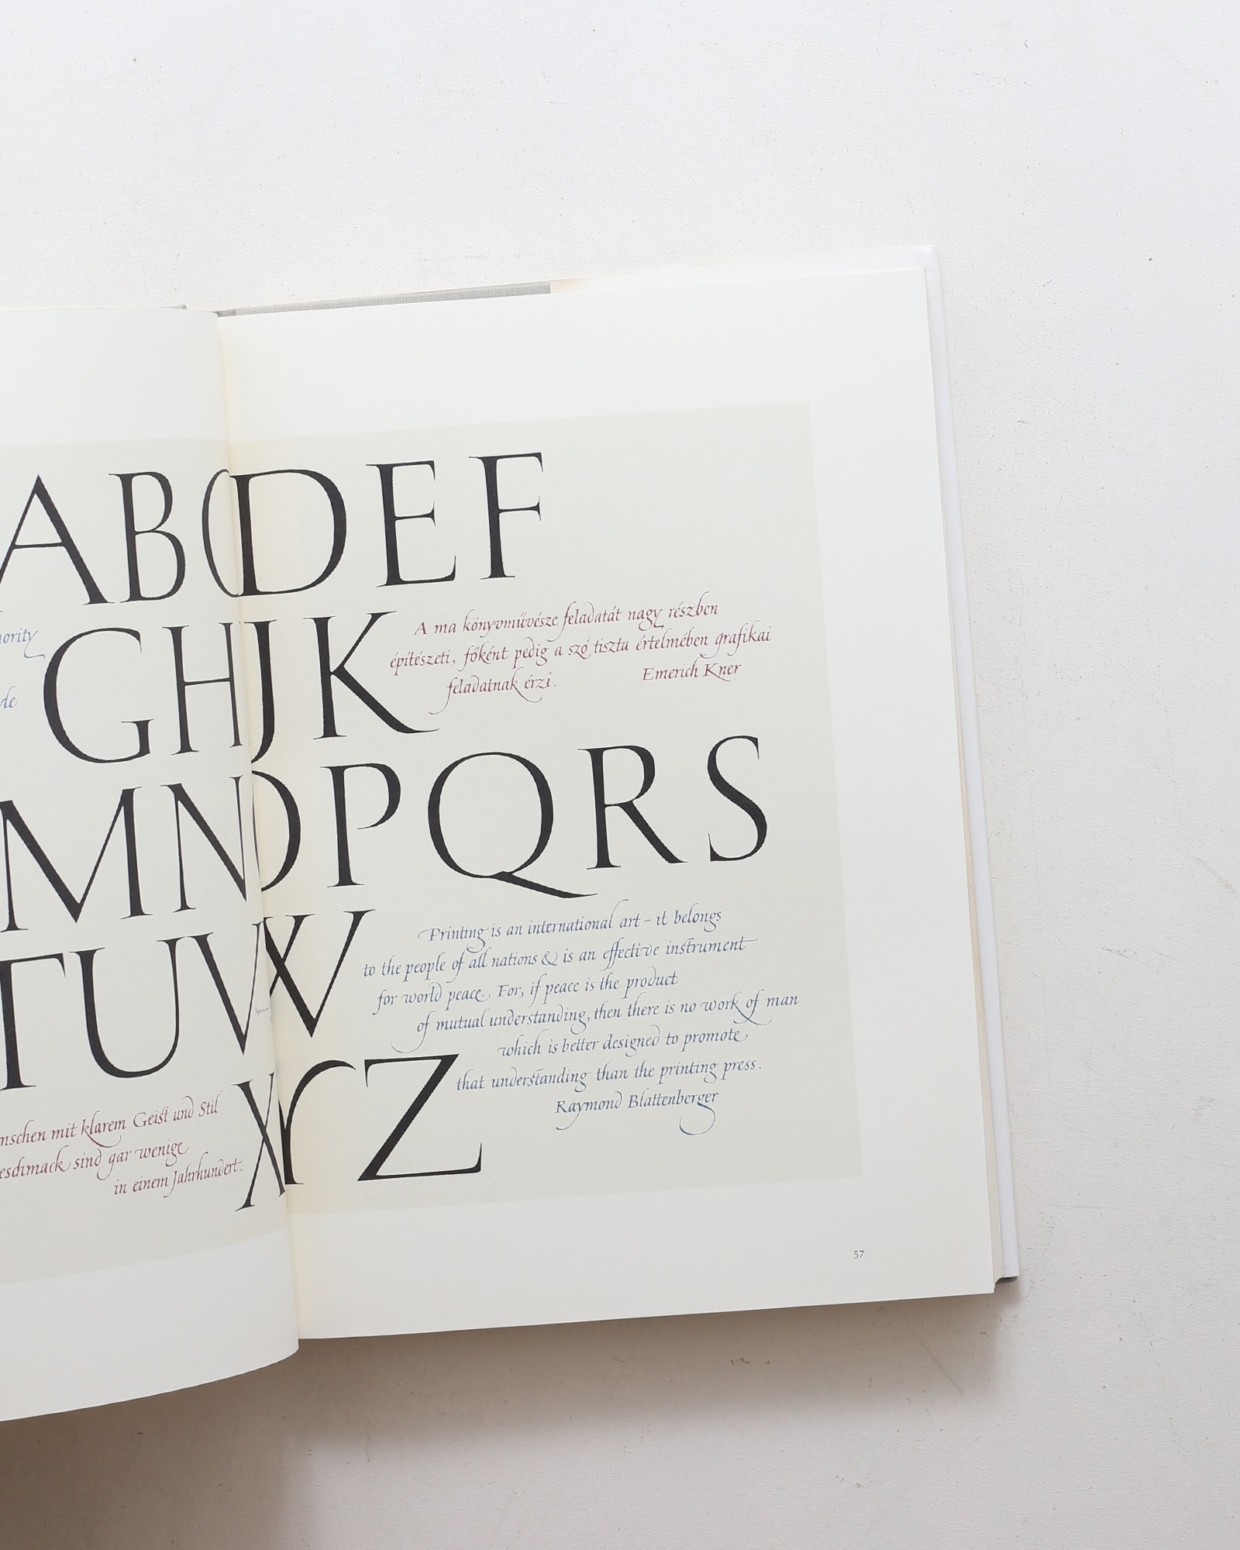 ABCDEF
GHJK
A ma könyvművésze feladatát nagy részben
építészeti, főként pedig a szó tiszta értelmében grafikai
feladatnak érzi.
Emerich Kner
MNOPQRS
TUVW
Printing is an international art – it belongs
to the people of all nations & is an effective instrument
for world peace. For, if peace is the product
of mutual understanding, then there is no work of man
which is better designed to promote
that understanding than the printing press.
Raymond Blattenberger
XYZ
mit klarem Geist und Stil
sind gar wenige
in einem Jahrhundert.
57